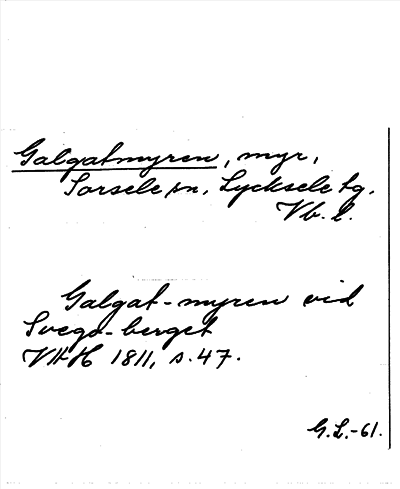 Galgatmyren, myr,
Sorsele sn, Lycksele tg.
Vb. l.
Galgat-myren vid
Svego-berget
VHH 1811, s. 47.
G.L.-61.